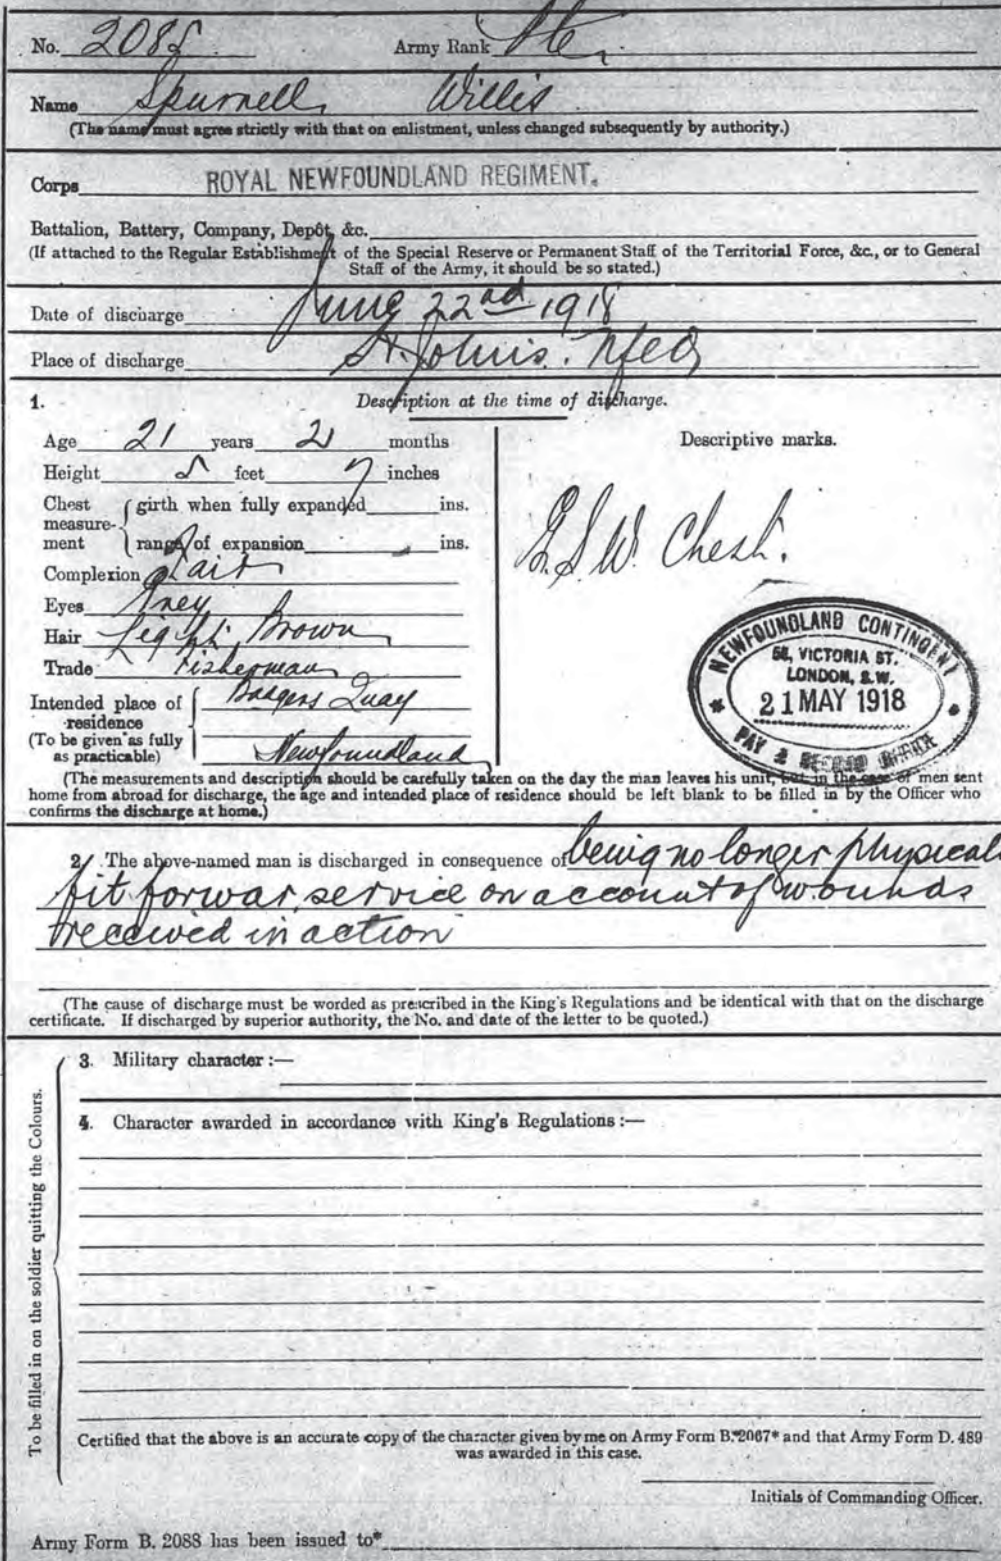 No. 2085 Army Rank Pte.
Name Spurrell, Willis
(The name must agree strictly with that on enlistment, unless changed subsequently by authority.)
Corps ROYAL NEWFOUNDLAND REGIMENT.
Battalion, Battery, Company, Depôt, &c.
(If attached to the Regular Establishment of the Special Reserve or Permanent Staff of the Territorial Force, &c., or to General
Staff of the Army, it should be so stated.)
Date of discharge June 22nd 1918
Place of discharge St. John's. Nfld
1. Description at the time of discharge.
Age 21 years 2 months
Height 5 feet 7 inches
Chest measure-ment girth when fully expanded ins.
range of expansion ins.
Complexion Fair
Eyes Grey
Hair Light Brown
Trade Fisherman
Intended place of residence Badgers Quay
(To be given as fully as practicable) Newfoundland
Descriptive marks.
G.S.W. Chest.
NEWFOUNDLAND CONTINGENT
58, VICTORIA ST.
LONDON, S.W.
21 MAY 1918
PAY & RECORD OFFICE
(The measurements and description should be carefully taken on the day the man leaves his unit, but in the case of men sent
home from abroad for discharge, the age and intended place of residence should be left blank to be filled in by the Officer who
confirms the discharge at home.)
2. The above-named man is discharged in consequence of being no longer physical
fit for war service on account of wounds
received in action
(The cause of discharge must be worded as prescribed in the King's Regulations and be identical with that on the discharge
certificate. If discharged by superior authority, the No. and date of the letter to be quoted.)
To be filled in on the soldier quitting the Colours.
3. Military character :—
4. Character awarded in accordance with King's Regulations :—
Certified that the above is an accurate copy of the character given by me on Army Form B. 2067* and that Army Form D. 489
was awarded in this case.
Initials of Commanding Officer.
Army Form B. 2088 has been issued to*